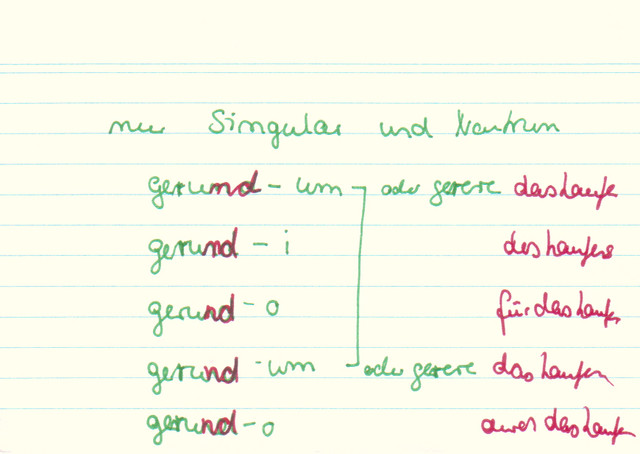 nur Singular und Neutrum
gerund - um oder gerere das Laufen
gerund - i des Laufens
gerund - o für das Laufen
gerund - um oder gerere das Laufen
gerund - o das Laufen